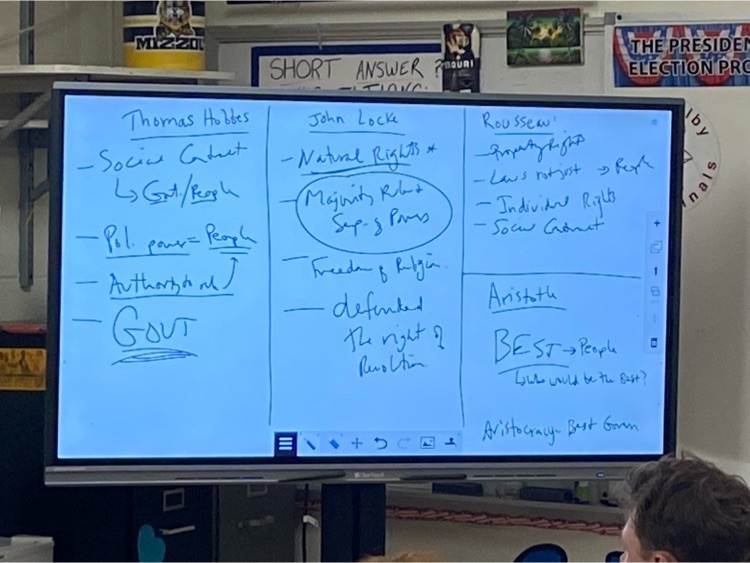 MIZZOU
SHORT ANSWER ?
THE PRESIDEN
ELECTION PRO
Thomas Hobbes
- Social Contract
↳ Govt/People
- Pol. power = People
- Authority to rule
- GOVT
John Locke
- Natural Rights *
- Majority Rule +
Sep. of Powers
- Freedom of Religion
- defended
the right of
Revolution
Rousseau:
- Property Rights
- Laws not just → People
- Individual Rights
- Social Contract
Aristotle
BEST → People
↳ Who would be the Best?
Aristocracy - Best Govern